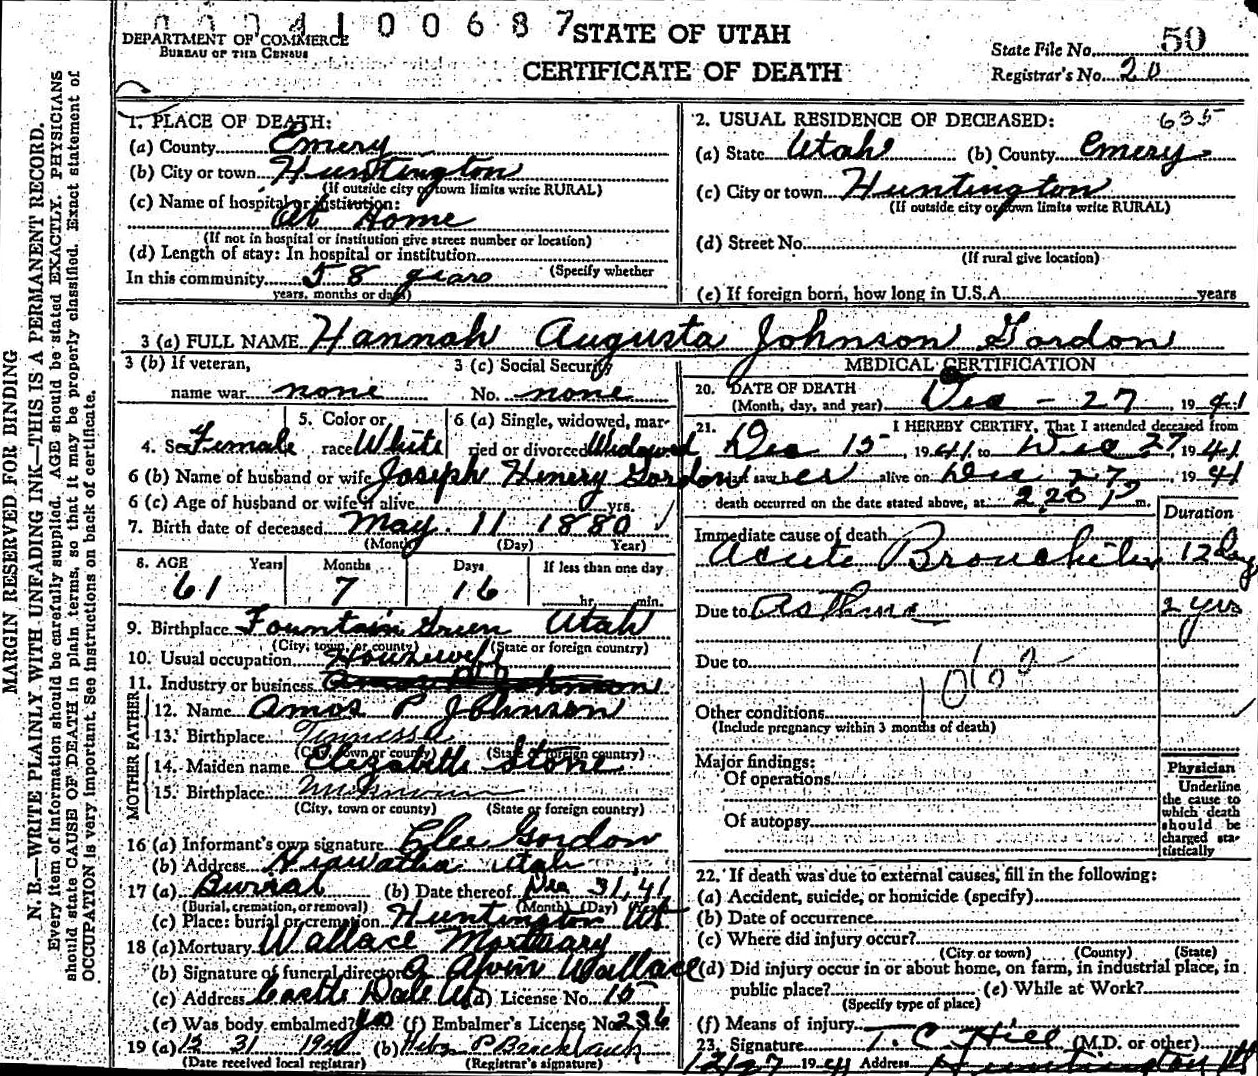 0 0 0 4 1 0 0 6 8 7
DEPARTMENT OF COMMERCE
BUREAU OF THE CENSUS
STATE OF UTAH
CERTIFICATE OF DEATH
State File No. 50
Registrar's No. 20
MARGIN RESERVED FOR BINDING
N. B.—WRITE PLAINLY WITH UNFADING INK—THIS IS A PERMANENT RECORD.
Every item of information should be carefully supplied. AGE should be stated EXACTLY. PHYSICIANS
should state CAUSE OF DEATH in plain terms, so that it may be properly classified. Exact statement of
OCCUPATION is very important. See instructions on back of certificate.
1. PLACE OF DEATH:
(a) County Emery
(b) City or town Huntington
(If outside city or town limits write RURAL)
(c) Name of hospital or institution:
At Home
(If not in hospital or institution give street number or location)
(d) Length of stay: In hospital or institution
(Specify whether
In this community 58 years
years, months or days)
2. USUAL RESIDENCE OF DECEASED: 635
(a) State Utah (b) County Emery
(c) City or town Huntington
(If outside city or town limits write RURAL)
(d) Street No.
(If rural give location)
(e) If foreign born, how long in U.S.A. years
3 (a) FULL NAME Hannah Augusta Johnson Gordon
3 (b) If veteran,
name war none
3 (c) Social Security
No. none
4. Sex Female
5. Color or
race White
6 (a) Single, widowed, mar-
ried or divorced Widowed
6 (b) Name of husband or wife Joseph Henery Gordon
6 (c) Age of husband or wife if alive yrs.
7. Birth date of deceased May 11 1880
(Month) (Day) Year)
8. AGE Years Months Days If less than one day
61 7 16 hr. min.
9. Birthplace Fountain Green Utah
(City, town, or county) (State or foreign country)
10. Usual occupation Housewife
11. Industry or business Amos P Johnson
FATHER
12. Name Amos P Johnson
13. Birthplace
(City, town or county) (State or foreign country)
MOTHER
14. Maiden name Elizabeth Stone
15. Birthplace
(City, town or county) (State or foreign country)
16 (a) Informant's own signature Gordon
(b) Address Hiawatha Utah
17 (a) Burial (b) Date thereof Dec 31, 41
(Burial, cremation, or removal) (Month) (Day)
(c) Place: burial or cremation Huntington Ut
18 (a) Mortuary Wallace Mortuary
(b) Signature of funeral director A Alvin Wallace
(c) Address Castle Dale Ut (d) License No. 15
(e) Was body embalmed? yes (f) Embalmer's License No. 236
19 (a) 12 31 (b)
(Date received local registrar) (Registrar's signature)
MEDICAL CERTIFICATION
20. DATE OF DEATH
(Month, day, and year) Dec - 27, 1941
21. I HEREBY CERTIFY, That I attended deceased from
Dec 15, 1941, to Dec 27 1941
last saw er alive on Dec 27 1941
death occurred on the date stated above, at 2.20 P m.
Duration
Immediate cause of death
Acute Bronchitis 12 Days
Due to Asthma 2 yrs
Due to
Other conditions
(Include pregnancy within 3 months of death)
Major findings:
Of operations
Of autopsy
Physician
Underline
the cause to
which death
should be
charged sta-
tistically
22. If death was due to external causes, fill in the following:
(a) Accident, suicide, or homicide (specify)
(b) Date of occurrence
(c) Where did injury occur?
(City or town) (County) (State)
(d) Did injury occur in or about home, on farm, in industrial place, in
public place? (e) While at Work?
(Specify type of place)
(f) Means of injury
23. Signature T. C. Hill (M.D. or other)
12/27 1941 Address Huntington Ut